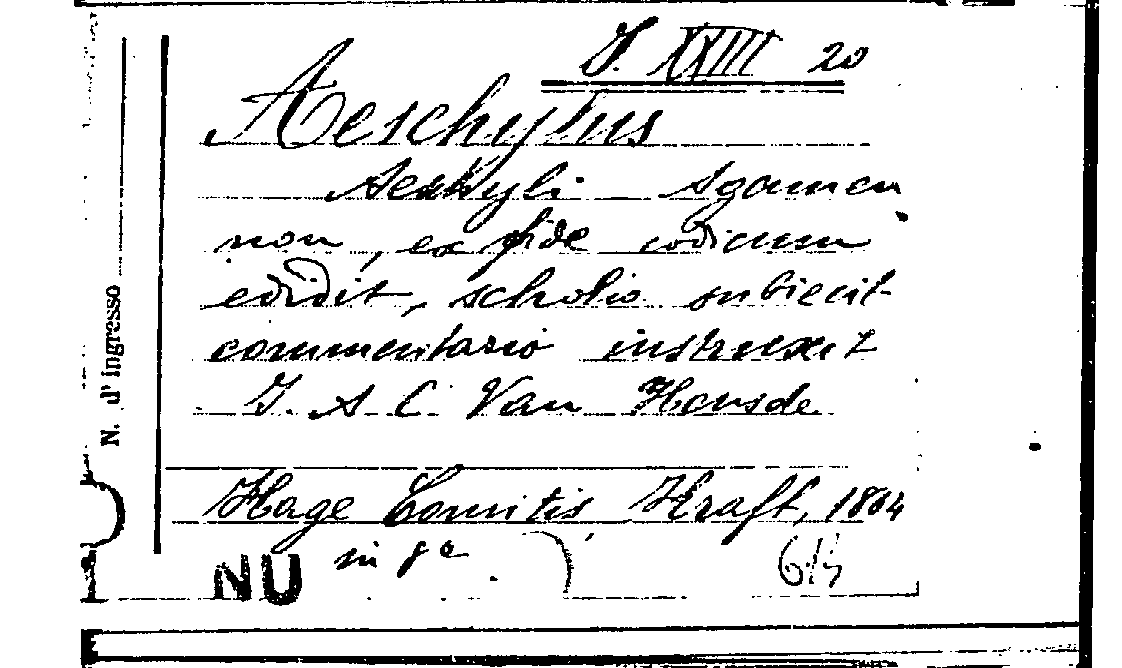 J. XXIII 20
Aeschylus
Aeschyli Agamem
non, ex fide codicum
edidit, scholia subiecit
commentario instruxit
J. A. C. Van Heusde
Hage Comitis, Kraft, 1864
in 8º
NU
N. d'ingresso